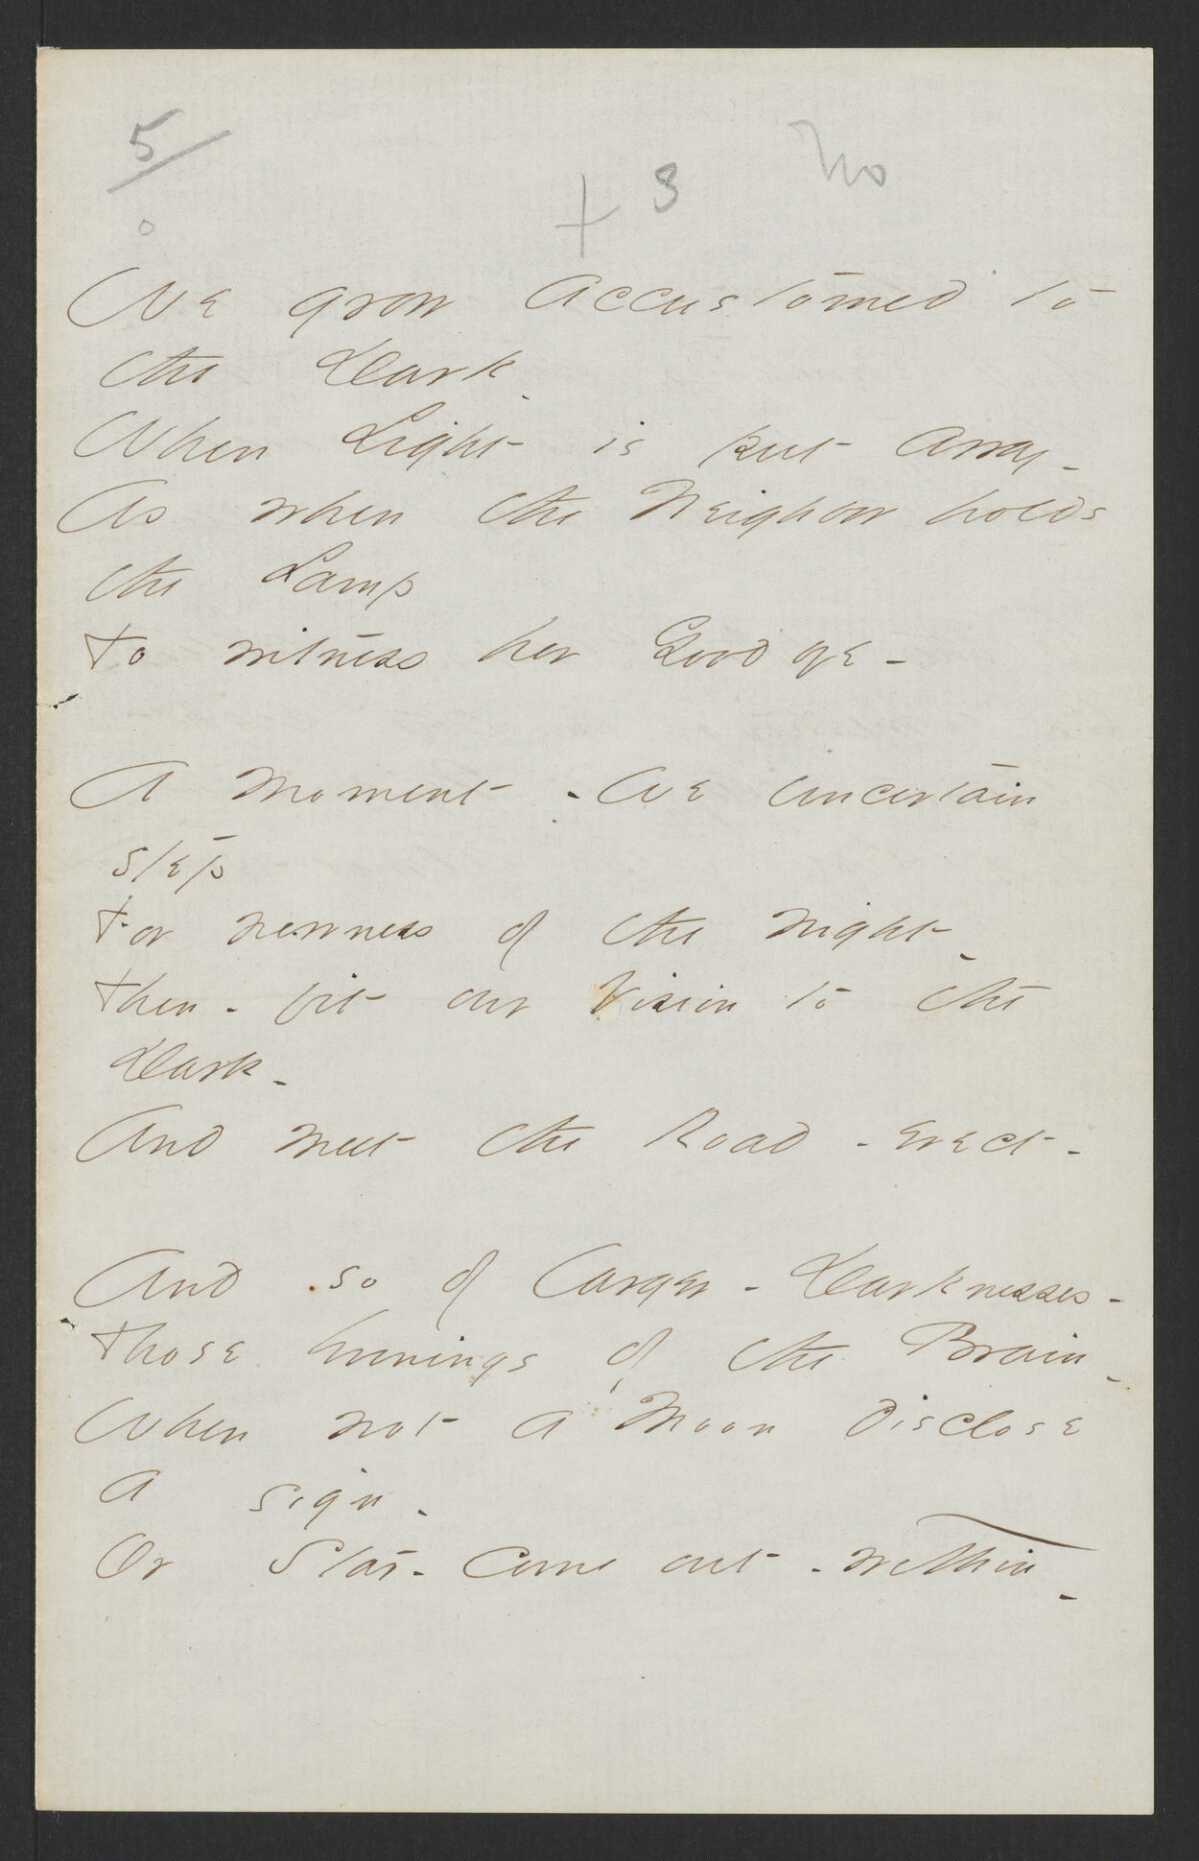 5
+ 3 No
We grow accustomed to
the Dark.
When Light is put away -
As when the Neighbor holds
the Lamp
To witness her Good bye -
A Moment - We uncertain
step
For newness of the night -
Then - fit our Vision to the
Dark -
And meet the Road - erect -
And so of larger - Darknesses -
Those Evenings of the Brain -
When not a Moon disclose
a sign -
Or Star - come out - within -